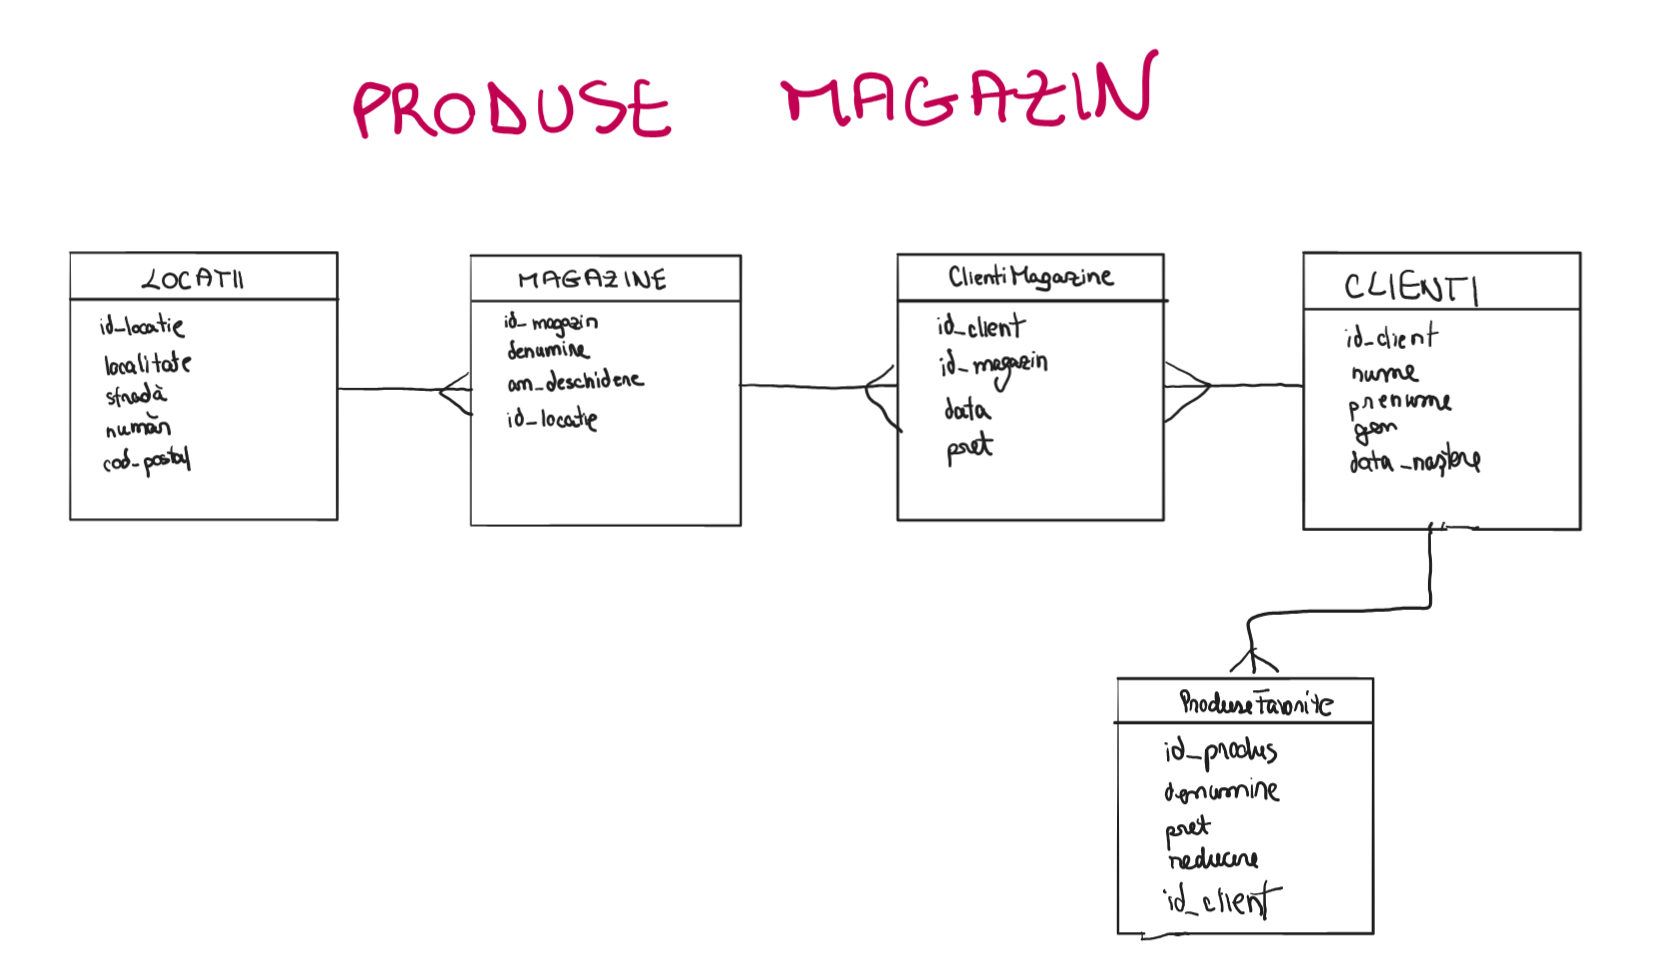 PRODUSE MAGAZIN
LOCATII
id_locatie
localitate
stradă
număr
cod_postal
MAGAZINE
id_magazin
denumire
an_deschidere
id_locatie
ClientiMagazine
id_client
id_magazin
data
pret
CLIENTI
id_client
nume
prenume
gen
data_naștere
ProduseFavorite
id_produs
denumire
pret
reducere
id_client